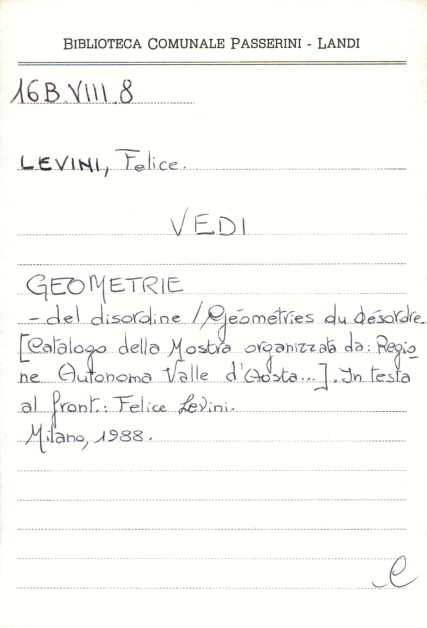 BIBLIOTECA COMUNALE PASSERINI - LANDI
16B.VIII.8
LEVINI, Felice.
VEDI
GEOMETRIE
- del disordine / Géométries du désordre.
[Catalogo della Mostra organizzata da: Regio
ne Autonoma Valle d'Aosta...]. In testa
al front.: Felice Levini.
Milano, 1988.